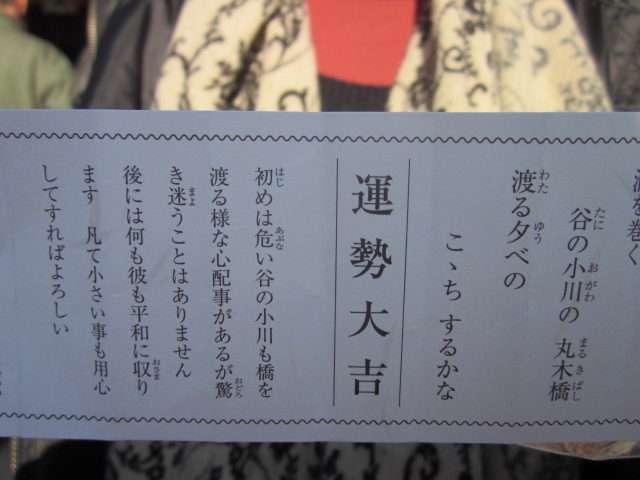 渦を巻く
谷の小川の 丸木橋
渡る夕べの
こゝち するかな
運勢大吉
初めは危い谷の小川も橋を
渡る様な心配事があるが驚
き迷うことはありません
後には何も彼も平和に収り
ます 凡て小さい事も用心
してすればよろしい